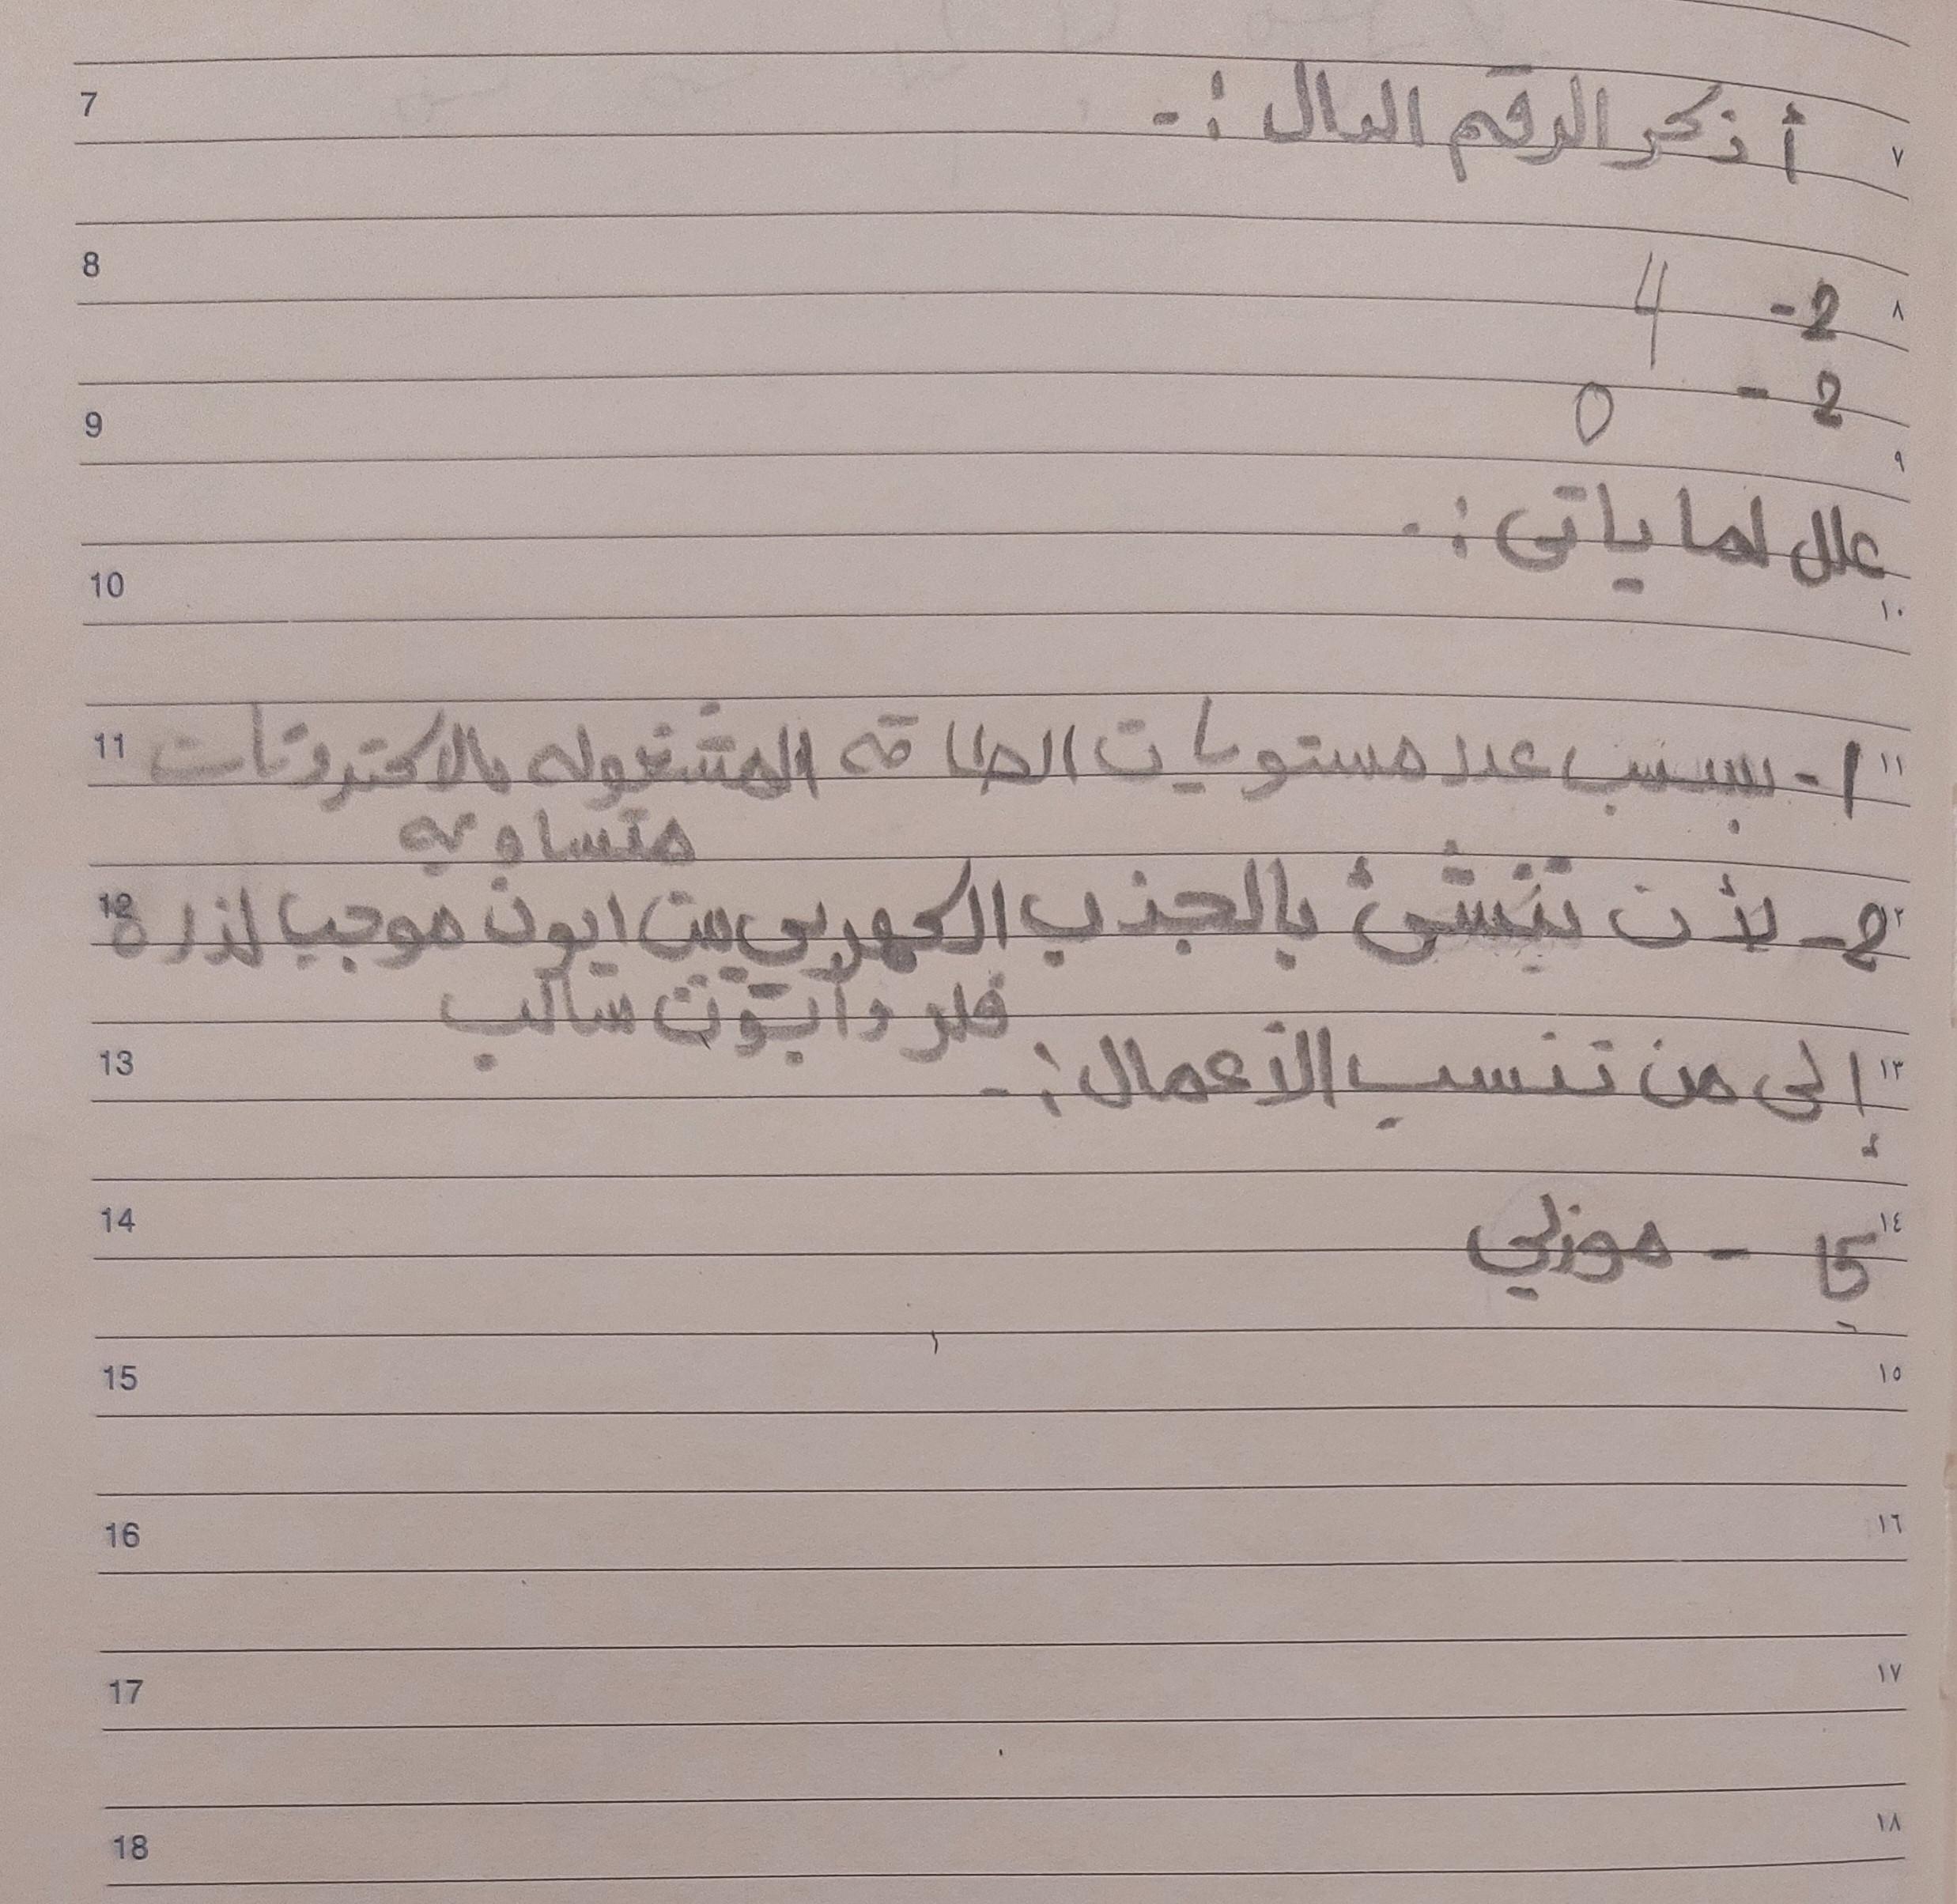 7 ٧
أذكر الرقم الدال :-
8 ٨
2- 4
2 - 0
9 ٩
علل لما ياتى :-
10 ١٠
11 ١١
1- بسبب عدد مستويات الطاقه المشغوله بالاكترونات
متساويه
12 ١٢
2- لأن تنشئ بالجذب الكهربي بين ايون موجب لذرة
فلز وأيون سالب
13 ١٣
إلى من تنسب الأعمال :-
14 ١٤
15 - موزلي
15 ١٥
16 ١٦
17 ١٧
18 ١٨